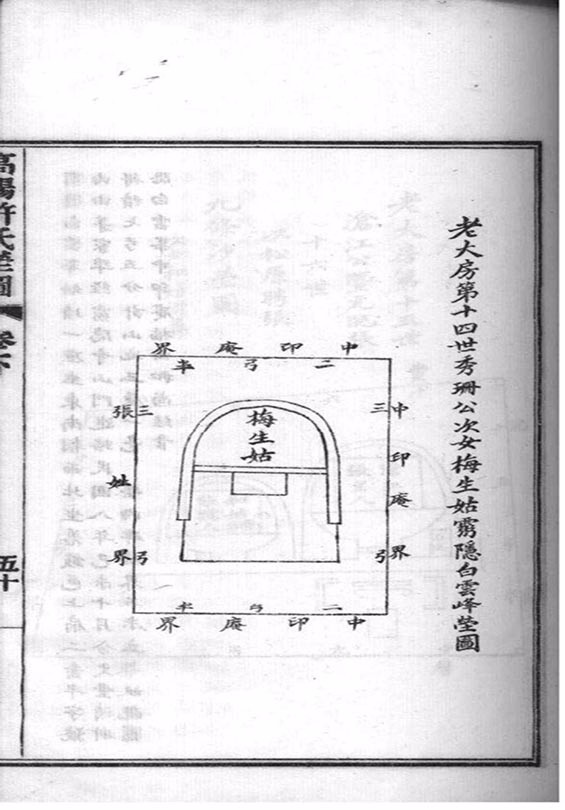 老大房第十四世秀珊公次女梅生姑霛隱白雲峰塋圖
中印庵界
二弓半
中印庵界
三弓
梅生姑
三弓
張姓界
二弓半
中印庵界
高陽許氏塋圖
卷下
五十